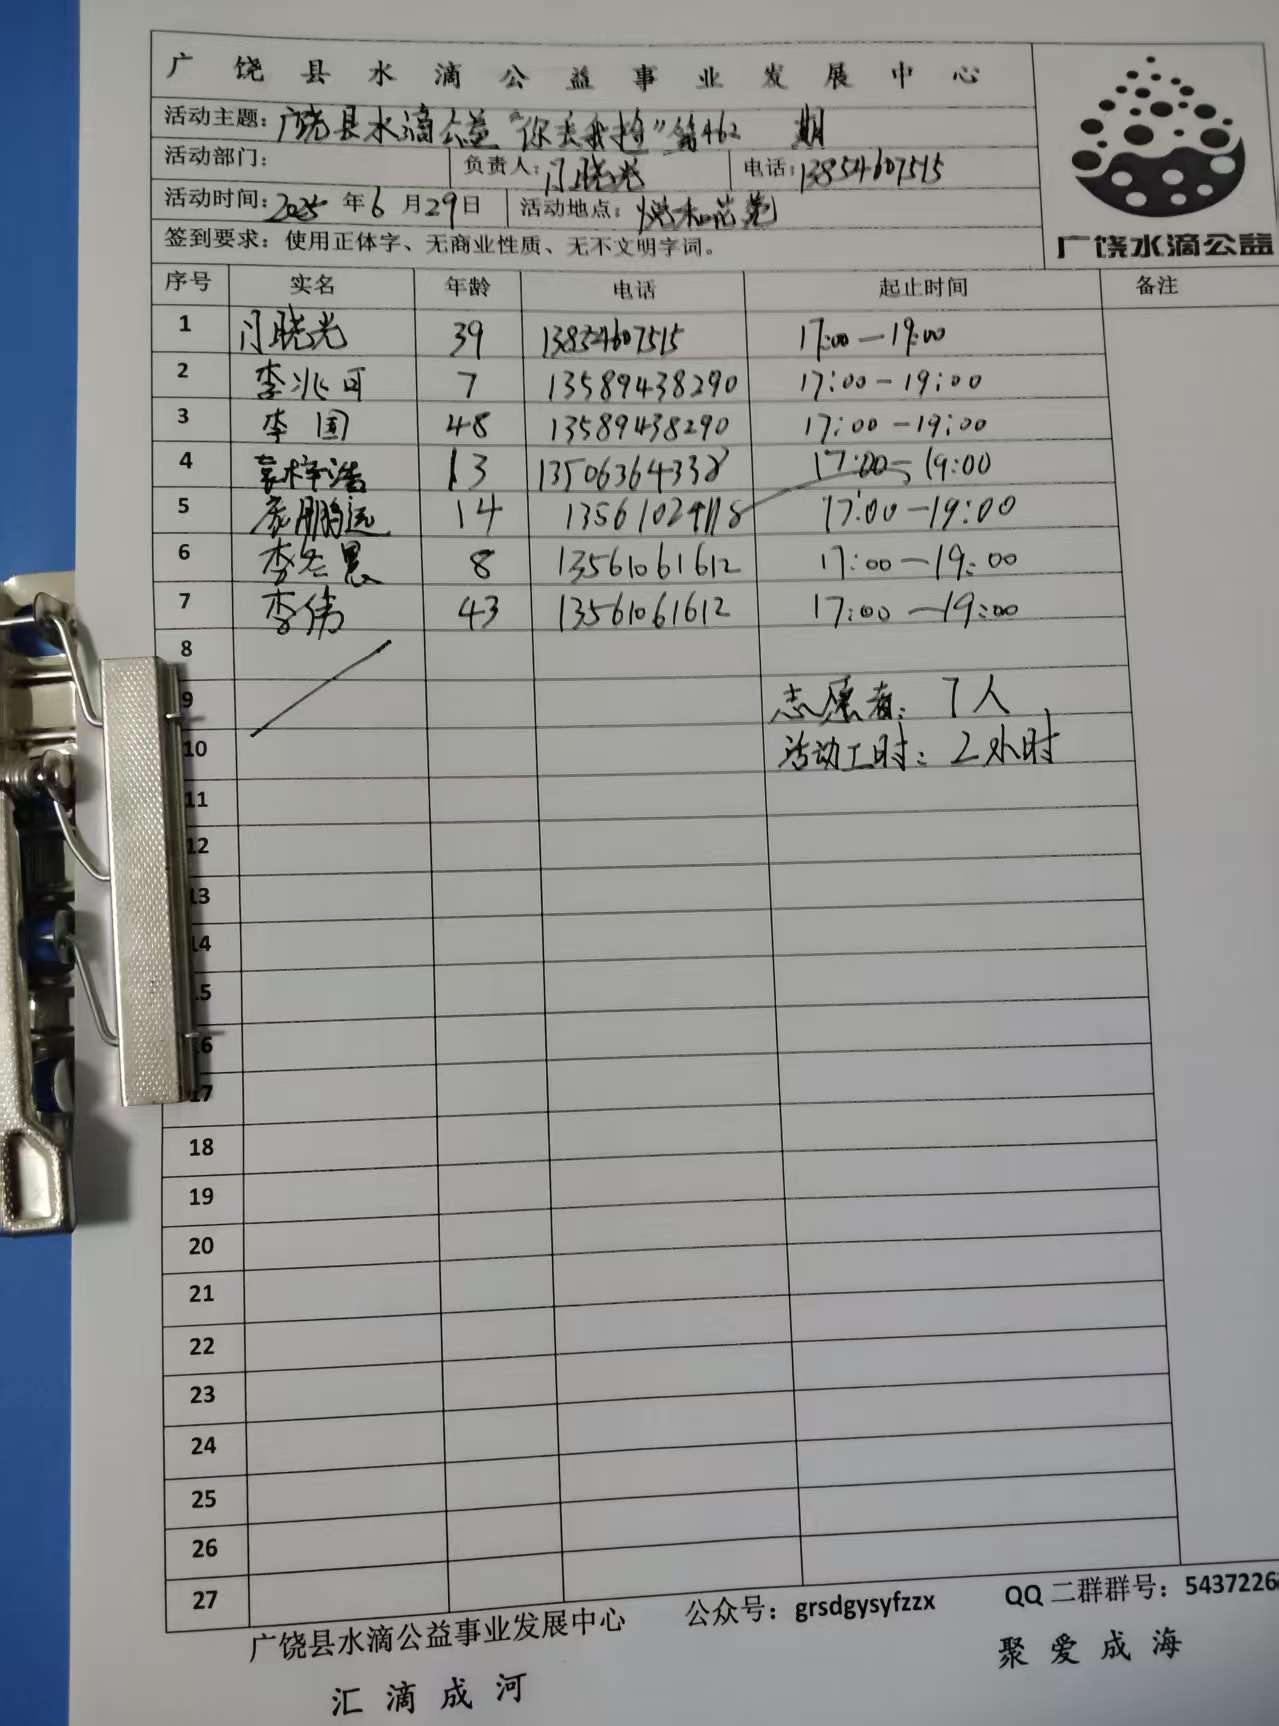 广饶县水滴公益事业发展中心
活动主题：广饶县水滴公益"你丢我捡"第462 期
活动部门： 负责人：门晓光 电话：13854607515
活动时间：2025年6月29日 活动地点：悦和花苑
签到要求：使用正体字、无商业性质、无不文明字词。
广饶水滴公益
序号 实名 年龄 电话 起止时间 备注
1 门晓光 39 13854607515 17:00—19:00
2 李兆可 7 13589438290 17:00-19:00
3 李国 48 13589438290 17:00-19:00
4 袁梓浩 13 13506364338 17:00-19:00
5 鹏远 14 13561029118 17:00-19:00
6 李 8 13561061612 17:00—19:00
7 李伟 43 13561061612 17:00—19:00
8
9 志愿者：7人
10 活动工时：2小时
11
12
13
14
15
16
17
18
19
20
21
22
23
24
25
26
27
广饶县水滴公益事业发展中心 公众号：grsdgysyfzzx QQ二群群号：5437226
汇滴成河 聚爱成海